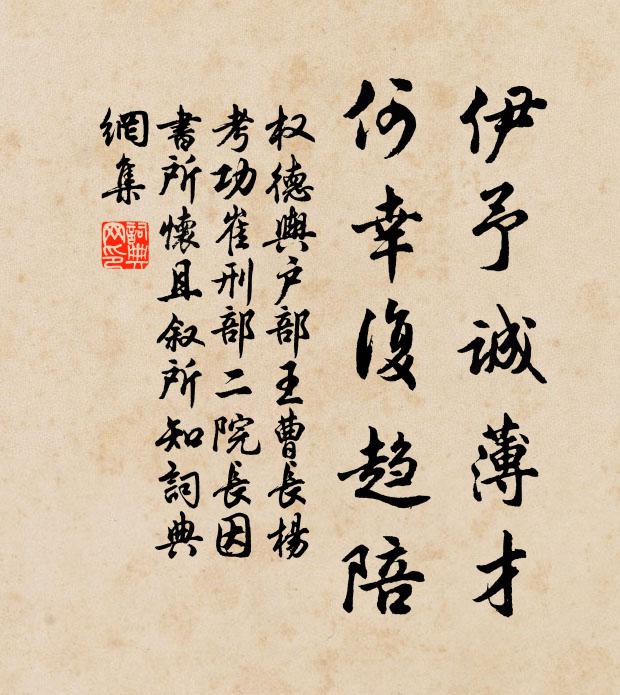 伊予诚薄才
何幸復趋陪
权德舆户部王曹長楊
考功崔刑部二院長因
書所懷且叙所知詞典
網集
詞典
网印